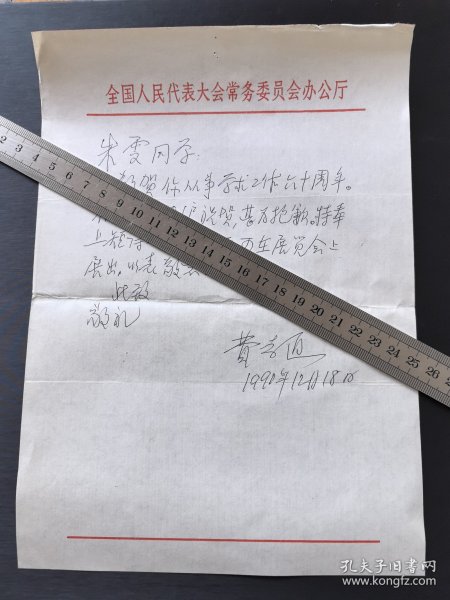 全国人民代表大会常务委员会办公厅
朱雯同学:
贺你从事学术工作六十周年。
祝贺,甚为抱歉。特奉
上 在展览会上
展出,以表敬
此致
敬礼
费孝通
1990年12月18日
2 3 4 5 6 7 8 9 10 11 12 13 14 15 16 17 18 19 20 21 22 23 24 25 26
孔夫子旧书网
www.kongfz.com